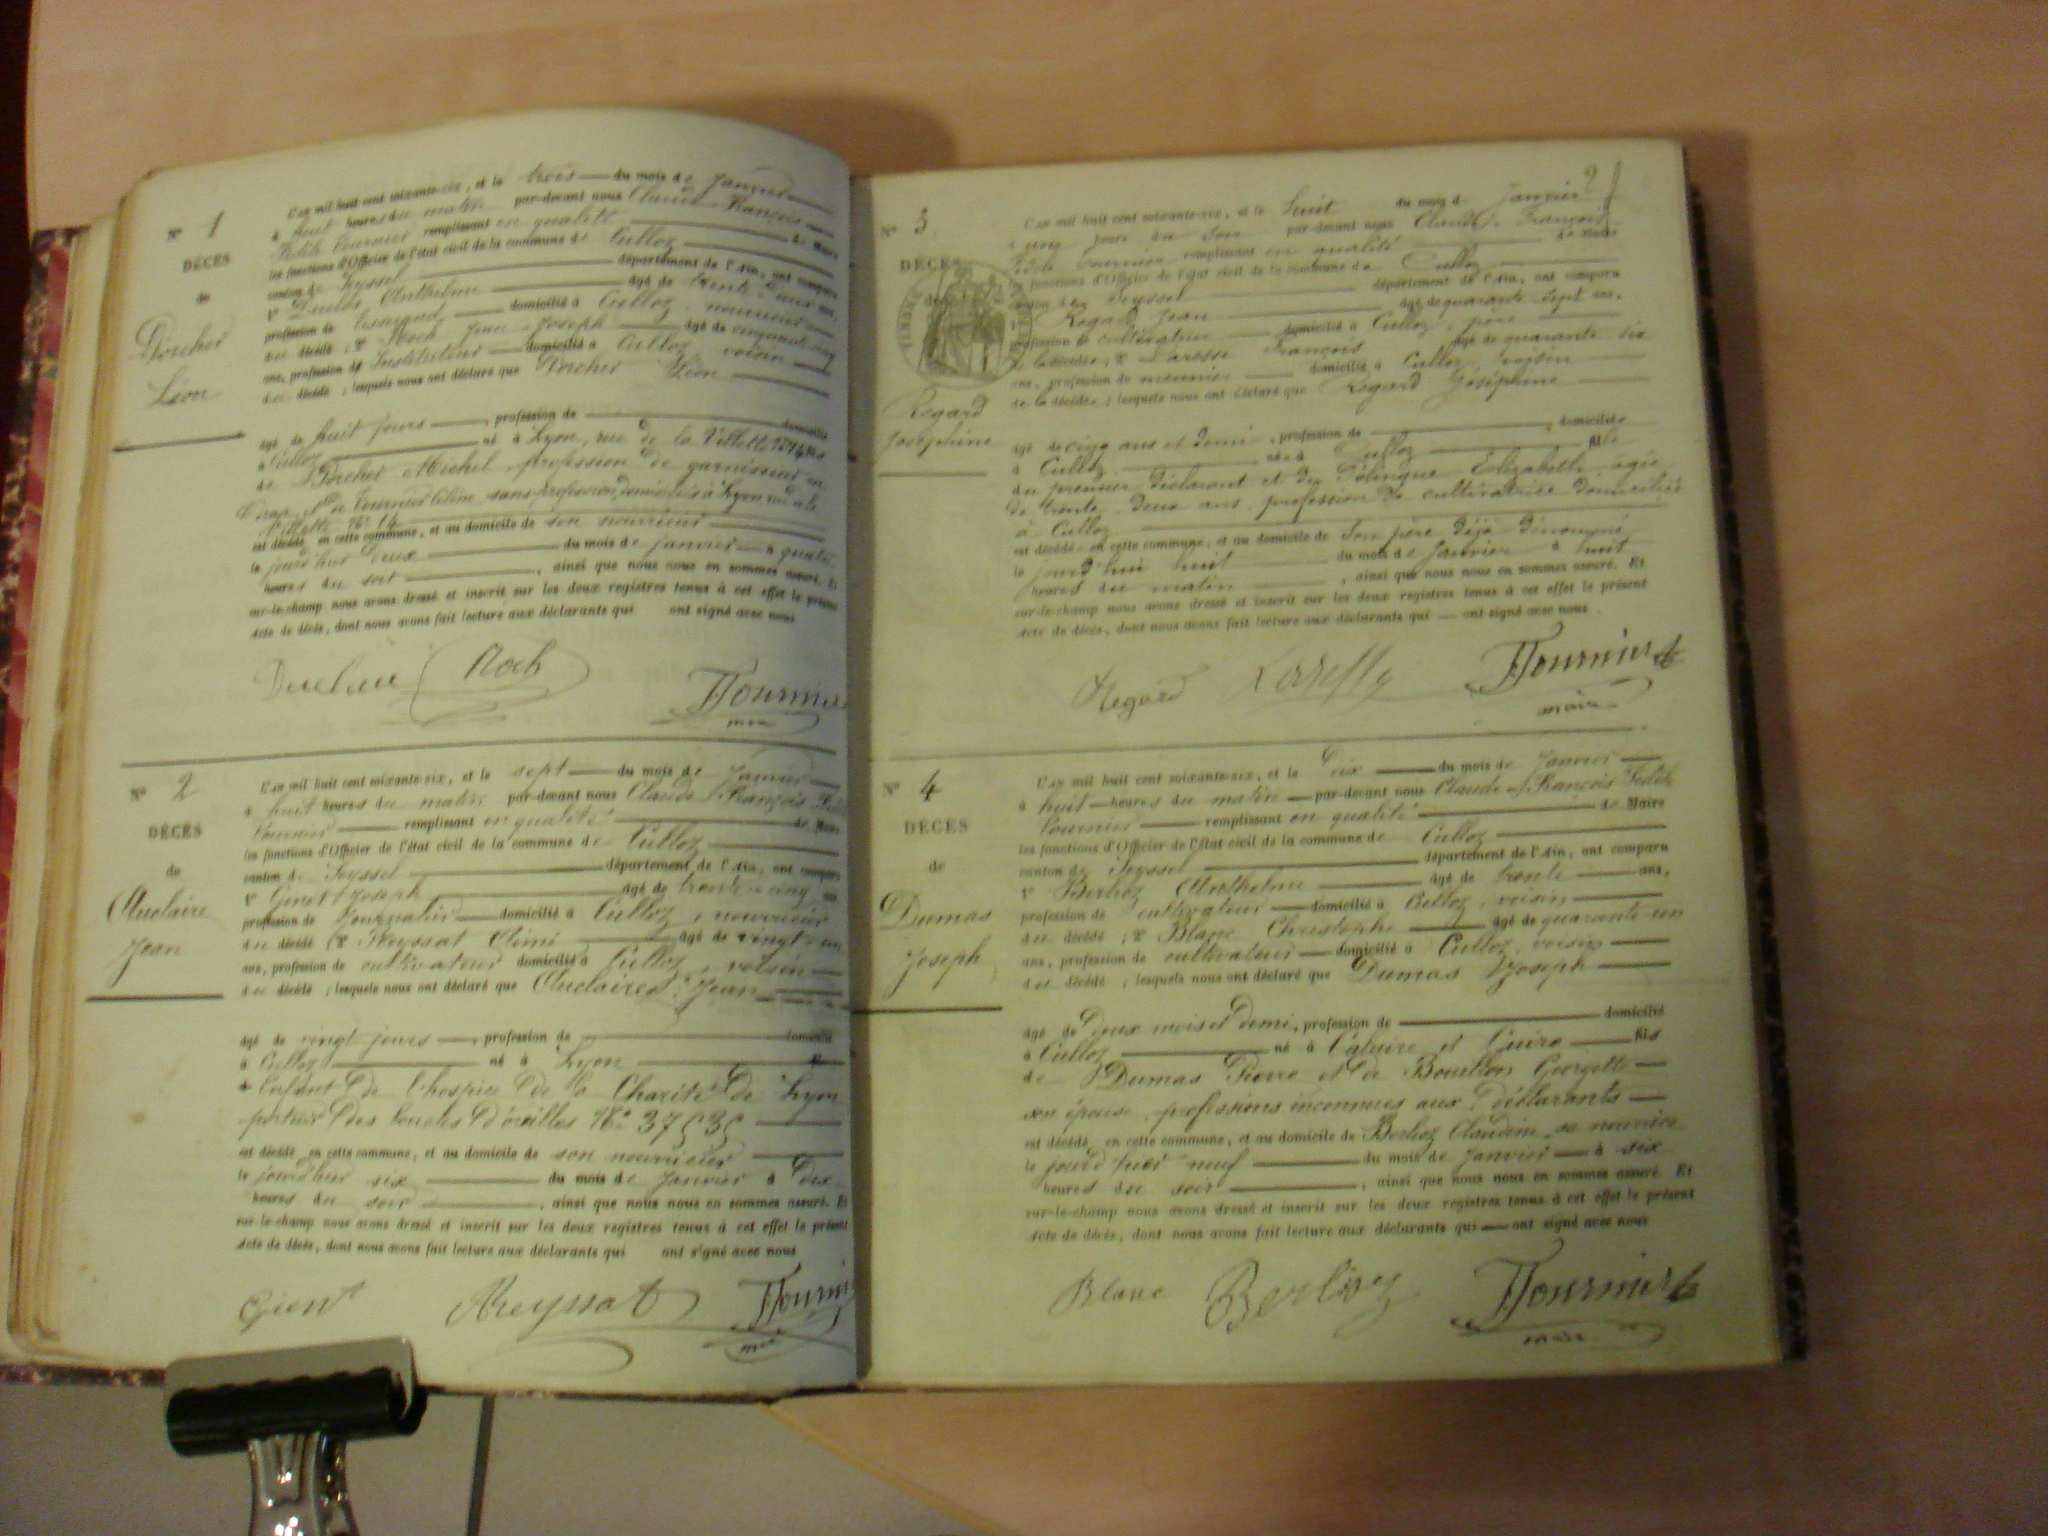 N° 1
DÉCÈS
de
Porcher
Léon
L'an mil huit cent soixante-six, et le trois du mois de Janvier
à huit heures du matin par-devant nous Claude François
Fidèle Fournier remplissant en qualité de Maire
les fonctions d'Officier de l'état civil de la commune de Culloz
canton de Seyssel département de l'Ain, ont comparu
1° Anthelme âgé de trente deux ans,
profession de domicilié à Culloz, nourricier
du décédé; 2° Roch Jean Joseph âgé de cinquante cinq
ans, profession d' Instituteur domicilié à Culloz voisin
du décédé; lesquels nous ont déclaré que Porcher Léon
âgé de huit jours, profession de domicilié
à Culloz né à Lyon, rue de la Villette N° 14 fils
de Porcher Michel, profession de garnisseur en
et de Fournier sans profession, domiciliés à Lyon rue de la
Villette N° 14
est décédé en cette commune, et au domicile de son nourricier
le jourd'hui deux du mois de janvier à quatre
heures du soir, ainsi que nous nous en sommes assuré. Et
sur-le-champ nous avons dressé et inscrit sur les deux registres tenus à cet effet le présent
acte de décès, dont nous avons fait lecture aux déclarants qui ont signé avec nous
Roch Fournier
N° 2
DÉCÈS
de
Auclaire
Jean
L'an mil huit cent soixante-six, et le sept du mois de Janvier
à huit heures du matin par-devant nous Claude François
Fournier remplissant en qualité de Maire
les fonctions d'Officier de l'état civil de la commune de Culloz
canton de Seyssel département de l'Ain, ont comparu
1° Joseph âgé de trente-cinq ans
profession de journalier domicilié à Culloz, nourricier
du décédé; 2° Reyssat âgé de vingt-un
ans, profession de cultivateur domicilié à Culloz, voisin
du décédé; lesquels nous ont déclaré que Auclaire Jean
âgé de vingt jours, profession de domicilié
à Culloz né à Lyon fil
de Enfant de l'hospice de la Charité de Lyon
porteur des boucles d'oreilles N°
est décédé en cette commune, et au domicile de son nourricier
le jourd'hui six du mois de Janvier à dix
heures du soir, ainsi que nous nous en sommes assuré. Et
sur-le-champ nous avons dressé et inscrit sur les deux registres tenus à cet effet le présent
acte de décès, dont nous avons fait lecture aux déclarants qui ont signé avec nous
Reyssat Fournier
2
N° 3
DÉCÈS
de
TIMBRE
Regard
Joséphine
L'an mil huit cent soixante-six, et le huit du mois de Janvier
à cinq heures du soir par-devant nous Claude François
Fidèle Fournier remplissant en qualité de Maire
les fonctions d'Officier de l'état civil de la commune de Culloz
canton de Seyssel département de l'Ain, ont comparu
1° Regard Jean âgé de quarante sept ans,
profession de cultivateur domicilié à Culloz, père
de la décédée; 2° François âgé de quarante six
ans, profession de meunier domicilié à Culloz voisin
de la décédée; lesquels nous ont déclaré que Regard Joséphine
âgé de cinq ans et demi, profession de domiciliée
à Culloz née à Culloz fille
du premier déclarant et de Elizabeth âgée
de trente deux ans profession de cultivatrice domiciliée
à Culloz
est décédée en cette commune, et au domicile de son père déjà dénommé
le jourd'hui huit du mois de Janvier à huit
heures du matin, ainsi que nous nous en sommes assuré. Et
sur-le-champ nous avons dressé et inscrit sur les deux registres tenus à cet effet le présent
acte de décès, dont nous avons fait lecture aux déclarants qui ont signé avec nous.
Regard Fournier
maire
N° 4
DÉCÈS
de
Dumas
Joseph
L'an mil huit cent soixante-six, et le dix du mois de Janvier
à huit heures du matin par-devant nous Claude François Fidèle
Fournier remplissant en qualité de Maire
les fonctions d'Officier de l'état civil de la commune de Culloz
canton de Seyssel département de l'Ain, ont comparu
1° Berlioz Anthelme âgé de trente ans,
profession de cultivateur domicilié à Culloz, voisin
du décédé; 2° Blanc Christophe âgé de quarante-un
ans, profession de cultivateur domicilié à Culloz, voisin
du décédé; lesquels nous ont déclaré que Dumas Joseph
âgé de deux mois et demi, profession de domicilié
à Culloz né à Caluire et Cuire fils
de Dumas Pierre et de Bouillon Georgette
son épouse, professions inconnues aux déclarants
est décédé en cette commune, et au domicile de Berlioz Claudine sa nourrice
le jourd'hui neuf du mois de Janvier à six
heures du soir, ainsi que nous nous en sommes assuré. Et
sur-le-champ nous avons dressé et inscrit sur les deux registres tenus à cet effet le présent
acte de décès, dont nous avons fait lecture aux déclarants qui ont signé avec nous
Blanc Berlioz Fournier